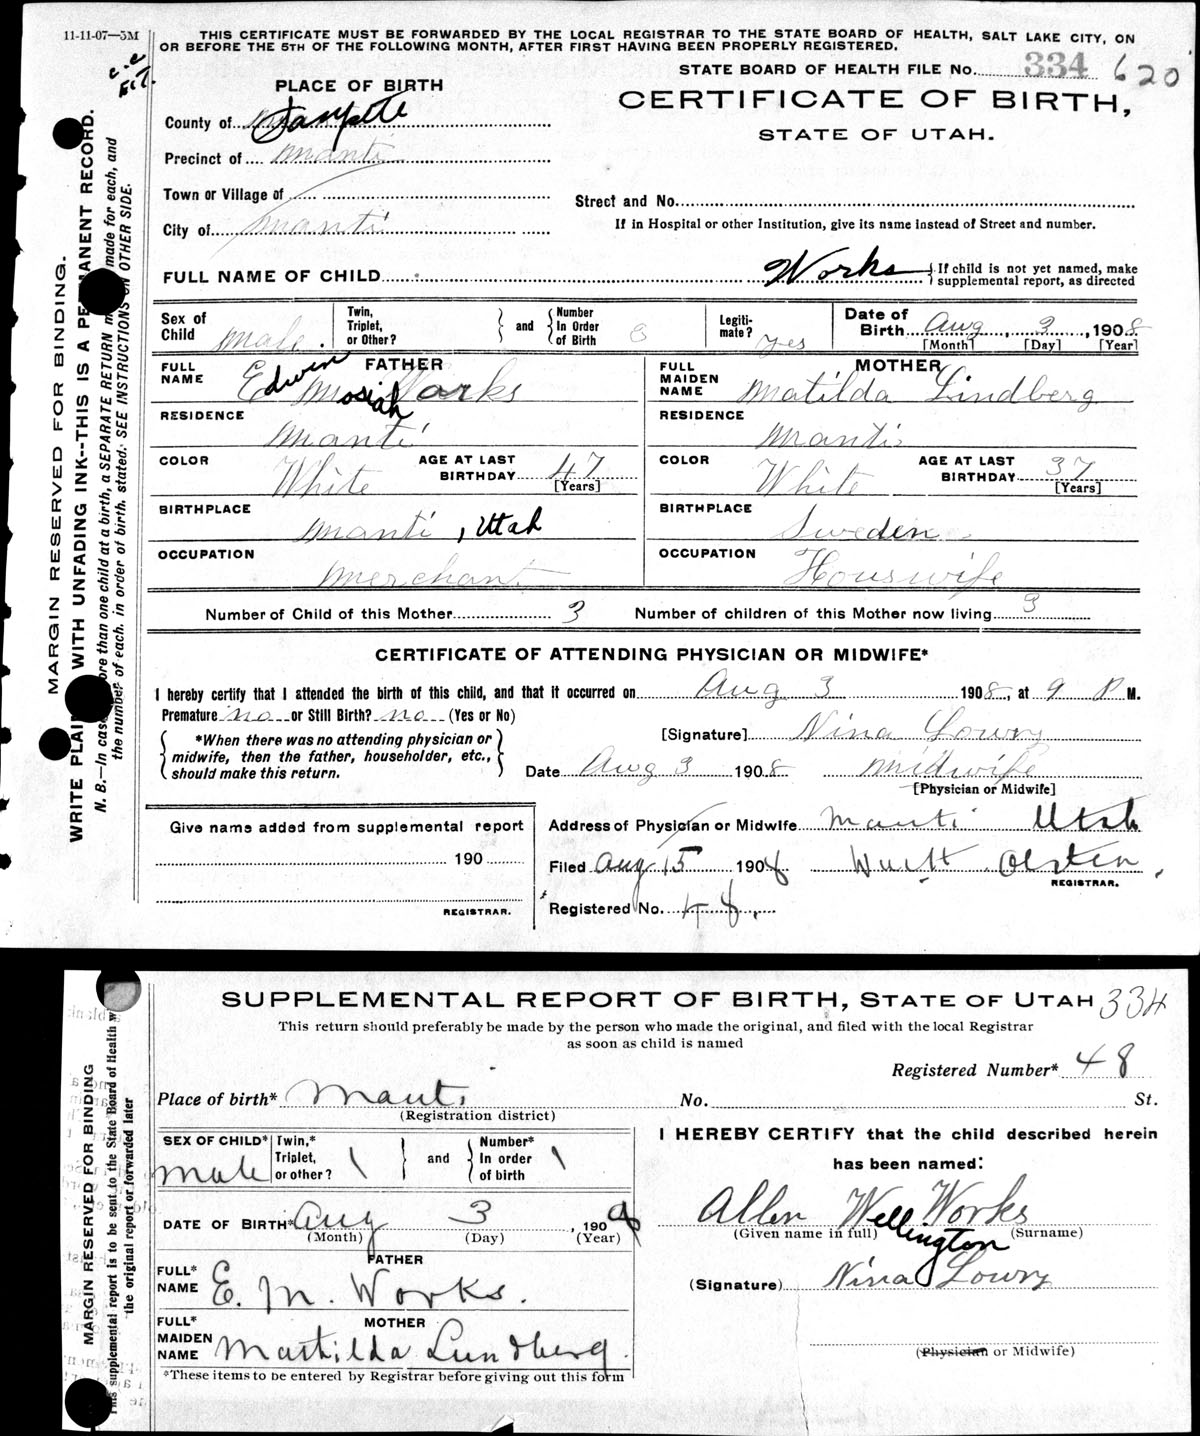 11-11-07—5M
THIS CERTIFICATE MUST BE FORWARDED BY THE LOCAL REGISTRAR TO THE STATE BOARD OF HEALTH, SALT LAKE CITY, ON
OR BEFORE THE 5TH OF THE FOLLOWING MONTH, AFTER FIRST HAVING BEEN PROPERLY REGISTERED.
STATE BOARD OF HEALTH FILE No. 334 620
PLACE OF BIRTH
CERTIFICATE OF BIRTH,
STATE OF UTAH.
County of Sanpete
Precinct of Manti
Town or Village of
Street and No.
City of Manti
If in Hospital or other Institution, give its name instead of Street and number.
FULL NAME OF CHILD Works { If child is not yet named, make supplemental report, as directed
Sex of Child Male. Twin, Triplet, or Other? } and { Number In Order of Birth 3 Legiti-mate? yes Date of Birth Aug, 3, 1908
[Month] [Day] [Year]
FATHER
FULL NAME Edwin Mosiah Works
MOTHER
FULL MAIDEN NAME Matilda Lindberg
RESIDENCE Manti
RESIDENCE Manti
COLOR White AGE AT LAST BIRTHDAY 47 [Years]
COLOR White AGE AT LAST BIRTHDAY 37 [Years]
BIRTHPLACE Manti, Utah
BIRTHPLACE Sweden
OCCUPATION Merchant
OCCUPATION Houswife
Number of Child of this Mother 3 Number of children of this Mother now living 3
CERTIFICATE OF ATTENDING PHYSICIAN OR MIDWIFE*
I hereby certify that I attended the birth of this child, and that it occurred on Aug 3 1908, at 9 P M.
Premature no or Still Birth? no (Yes or No)
{ *When there was no attending physician or midwife, then the father, householder, etc., should make this return. }
[Signature] Nina Lowry
Date Aug 3 1908 Midwife
[Physician or Midwife]
Give name added from supplemental report
190
REGISTRAR.
Address of Physician or Midwife Manti Utah
Filed Aug 15 1908 Olsten
REGISTRAR.
Registered No. 48.
MARGIN RESERVED FOR BINDING.
WRITE PLAI WITH UNFADING INK--THIS IS A PE MANENT RECORD.
N. B.—In case ore than one child at a birth, a SEPARATE RETURN m made for each, and
the number of each. in order of birth, stated. SEE INSTRUCTIONS ON OTHER SIDE.
SUPPLEMENTAL REPORT OF BIRTH, STATE OF UTAH 334
This return should preferably be made by the person who made the original, and filed with the local Registrar
as soon as child is named
Registered Number* 48
Place of birth* Manti No. St.
(Registration district)
SEX OF CHILD* Male Twin,* Triplet, or other? \ } and { Number* In order of birth \
I HEREBY CERTIFY that the child described herein
has been named:
DATE OF BIRTH* Aug 3, 1908
(Month) (Day) (Year)
Allen Wellington Works
(Given name in full) (Surname)
FATHER
FULL* NAME E. M. Works.
(Signature) Nina Lowry
MOTHER
FULL* MAIDEN NAME Matilda Lundberg.
(Physician or Midwife)
*These items to be entered by Registrar before giving out this form
MARGIN RESERVED FOR BINDING
This supplemental report is to be sent to the State Board of Health w
the original report or forwarded later